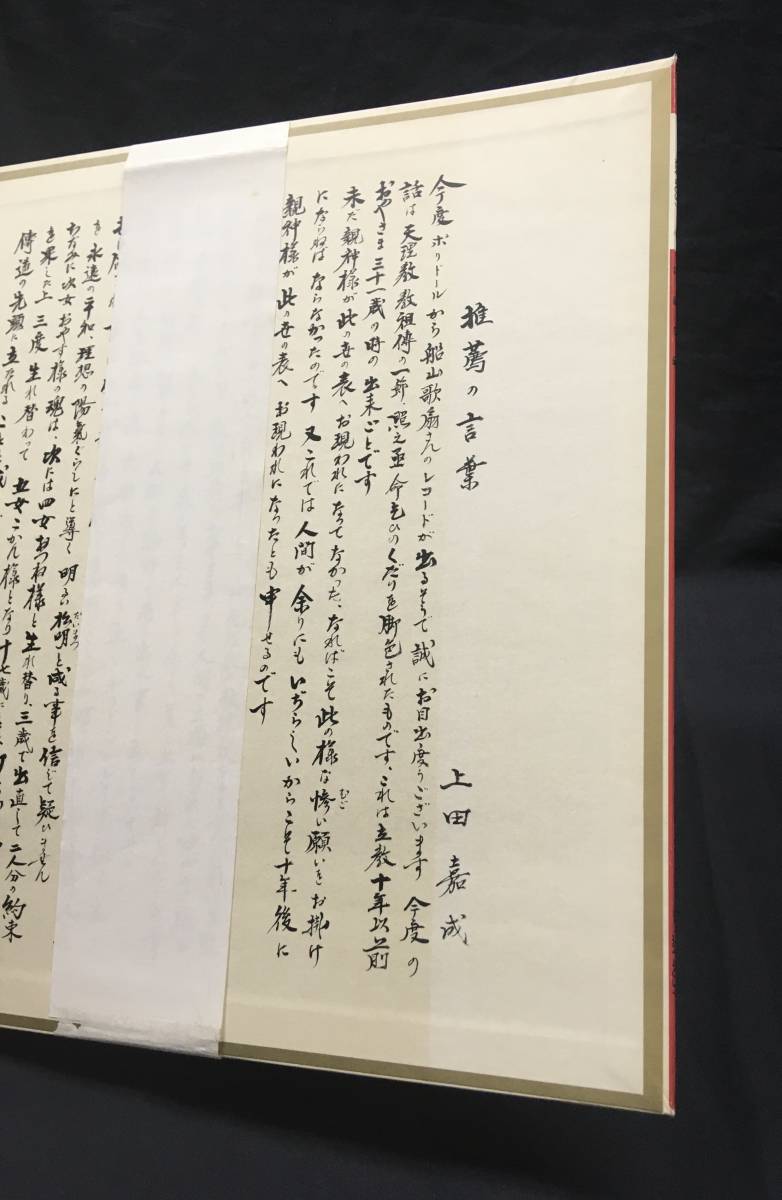 推薦の言葉
上田嘉成
今度ポリドールから船山歌扇さんのレコードが出るそうで誠にお目出度うございます 今度の
話は天理教教祖傳の一節、照之丞命乞ひのくだりを脚色されたものです、これは立教十年以前
おやさま三十一歳の時の出来ごとです
未だ親神様が此の世の表へお現われになってなかった、なればこそ此の様な惨い願いをお掛け
むご
にならねばならなかったのです 又これでは人間が余りにもいぢらしいからこそ十年後に
親神様が此の世の表へお現われになったとも申せるのです
を永遠の平和、理想の陽氣ぐらしにと導く明るい松明と成る事を信じて疑ひません
たいまつ
ちなみに次女おやす様の魂は、次には四女おつね様と生れ替り、三歳で出直して二人分の約束
を果した上 三度生れ替わって五女こかん様となり十七歳に
傳道の先頭に立たれる